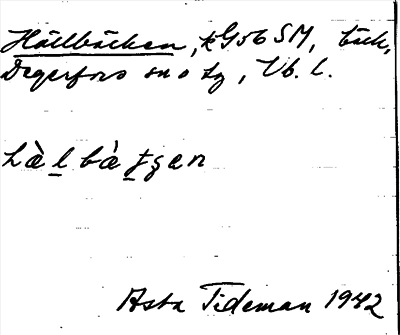 Hällbäcken, kG56 SM, bäck,
Degerfors sn o lg, Vb. l.
hàlbàtgen
Asta Tideman 1942